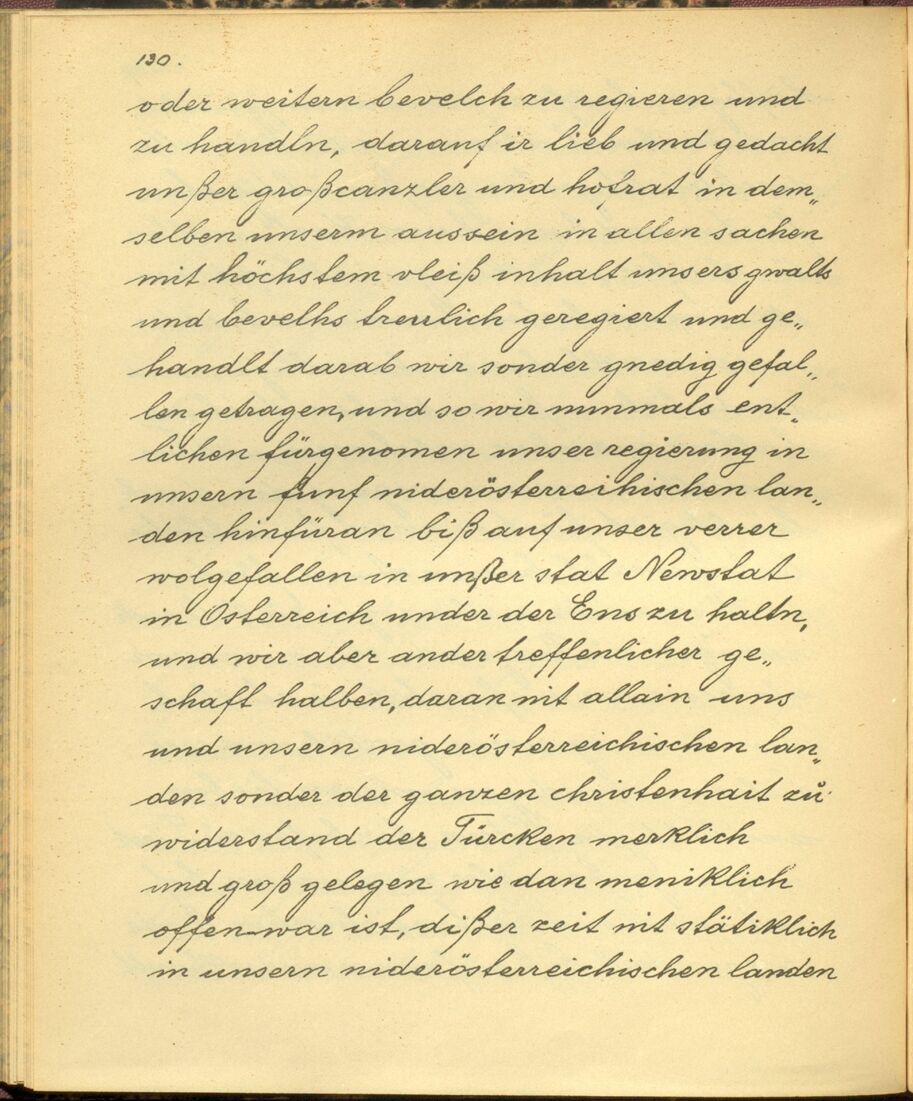 130.
oder weitern bevelch zu regieren und
zu handln, darauf ir lieb und gedacht
unßer großcanzler und hofrat in dem„
selben unserm aussein in allen sachen
mit höchstem vleiß inhalt unsers gwalts
und bevelhs treulich geregiert und ge„
handlt darab wir sonder gnedig gefal„
len getragen, und so wir nunmals ent„
lichen fürgenomen unser regierung in
unsern fünf niderösterreihischen lan„
den hinfüran biß auf unser verrer
wolgefallen in unßer stat Newstat
in Osterreich under der Ens zu haltn,
und wir aber ander treffenlicher ge„
schaft halben, daran nit allain uns
und unsern niderösterreichischen lan„
den sonder der ganzen christenhait zů
widerstand der Türcken merklich
und groß gelegen wie dan meniklich
offen-war ist, dißer zeit nit stätiklich
in unsern niderösterreichischen landen